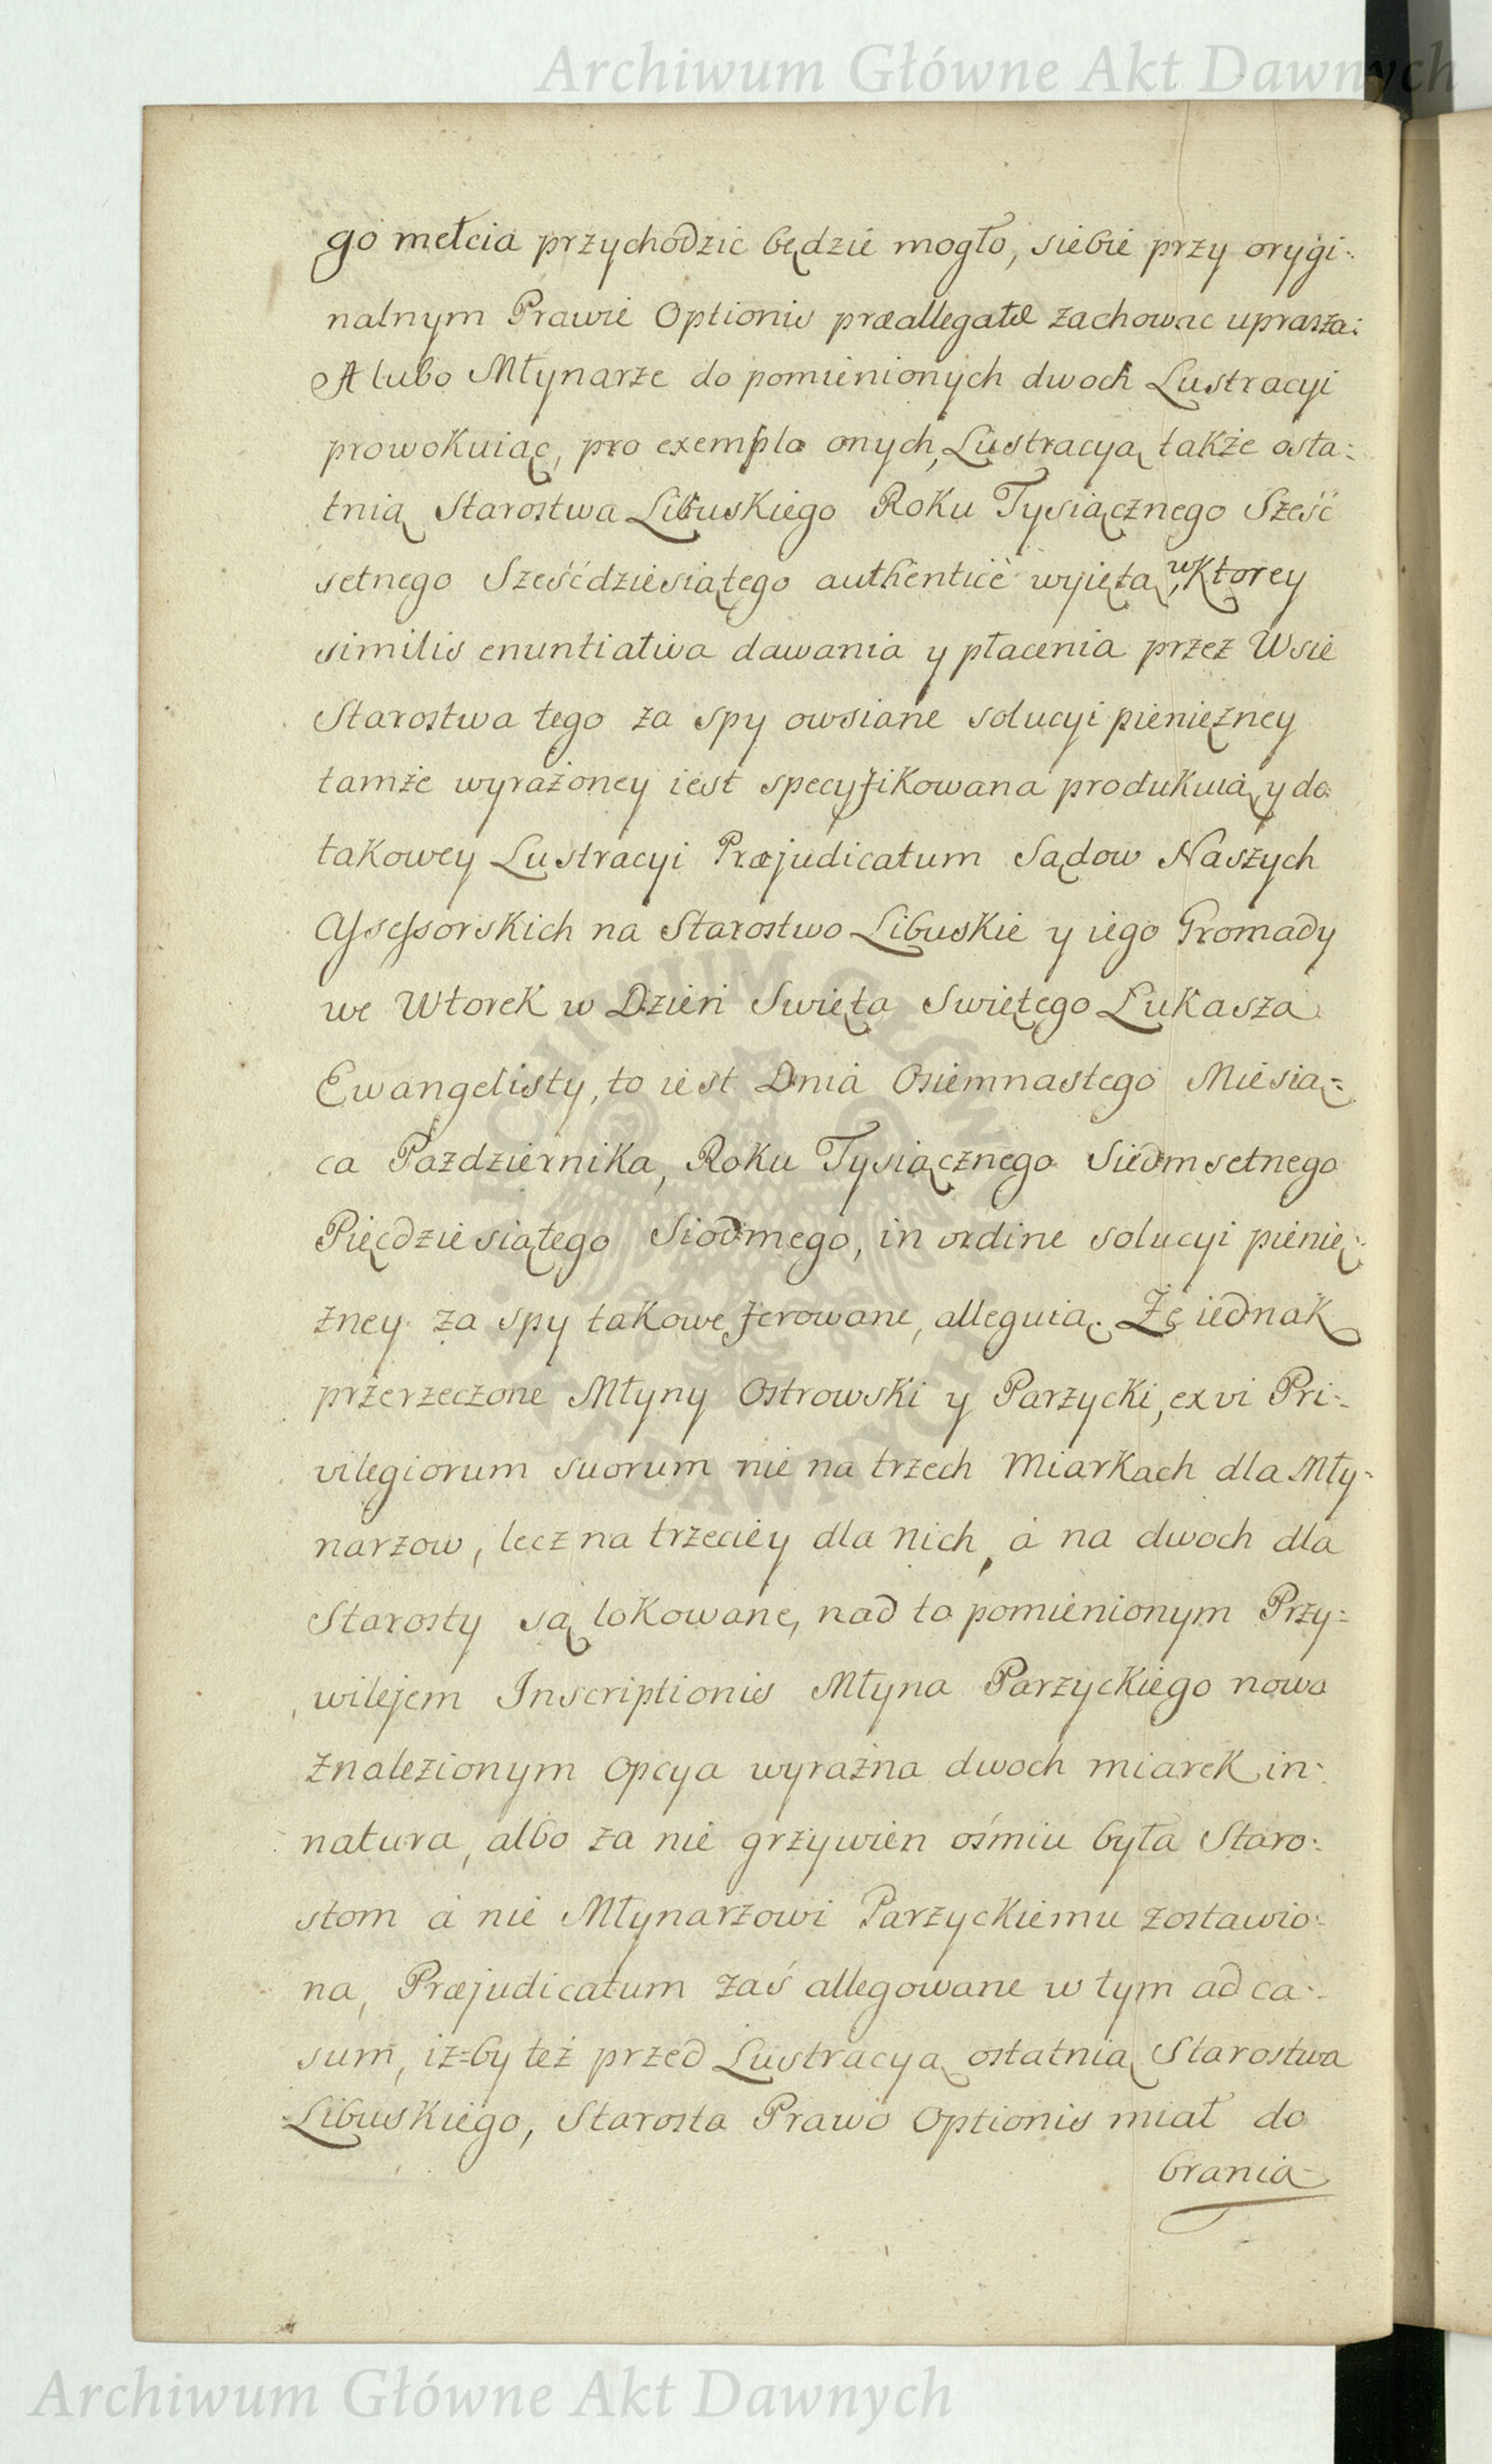 Archiwum Główne Akt Dawnych
go mełcia przychodzic będzie mogło, siebie przy orygi:
nalnym Prawie Optionis præallegatæ zachowac uprasza:
A lubo Młynarze do pomienionych dwoch Lustracyi
prowokuiąc, pro exemplo onych, Lustracyą także osta:
tnią Starostwa Libuskiego Roku Tysiącznego Sześć
setnego Sześćdziesiątego authenticè wyiętą, w Ktorey
similis enuntiativa dawania y płacenia przez Wsie
Starostwa tego za spy owsiane solucyi pieniężney
tamże wyrażoney iest specyfikowana produkuią y do
takowey Lustracyi Præjudicatum Sądow Naszych
Assessorskich na Starostwo Libuskie y iego Gromady
we Wtorek w Dzień Swięta Swiętego Lukasza
Ewangelisty, to iest Dnia Osiemnastego Miesią=
ca Pazdziernika, Roku Tysiącznego Siedmsetnego
Pięcdziesiątego Siodmego, in ordine solucyi pienię:
żney za spy takowe ferowane, alleguią. Że iednak
przerzeczone Młyny Ostrowski y Parzycki, ex vi Pri=
vilegiorum suorum nie na trzech Miarkach dla Mły=
narzow, lecz na trzeciey dla nich, á na dwoch dla
Starosty są lokowane, nad to pomienionym Przy=
wilejem Inscriptionis Młyna Parzyckiego nowo
znalezionym opcya wyraźna dwoch miarek in:
natura, albo za nie grzywien ośmiu była Staro:
stom á nie Młynarzowi Parzyckiemu zostawio:
na, Præjudicatum zaś allegowane w tym ad ca:
sum, iż=by też przed Lustracyą ostatnią Starostwa
Libuskiego, Starosta Prawo Optionis miał do
brania
Archiwum Główne Akt Dawnych